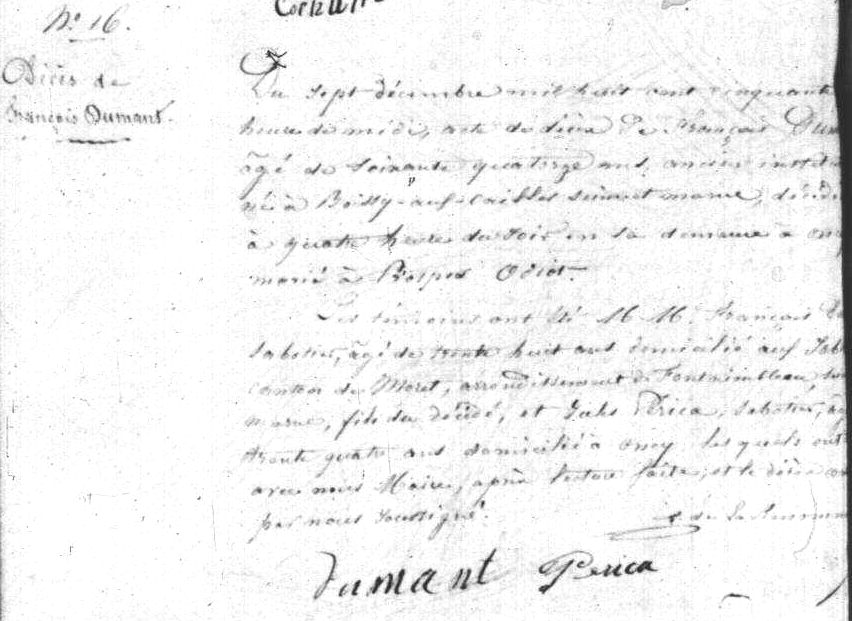 N.° 16.
Décès de
François Dumant.
Du sept décembre mil huit cent cinquante
heure de midi, acte de décès de François Dum
âgé de soixante quatorze ans, ancien institu
né à Boissy-aux-cailles seine et marne, décédé
à quatre heure du soir en sa demeure à oncy
marié à Prosper Odiot.
Les témoins ont été M M. François Du
sabotier, âgé de trente huit ans domicilié aux Sabl
canton de Moret, arrondissement de Fontainebleau, sei
marne, fils du décédé, et Jules Périca, sabotier, âg
trente quatre ans domicilié à oncy lesquels ont
avec nous Maire, après lecture faite, et le décès con
par nous soussigné.
Dumant Perica